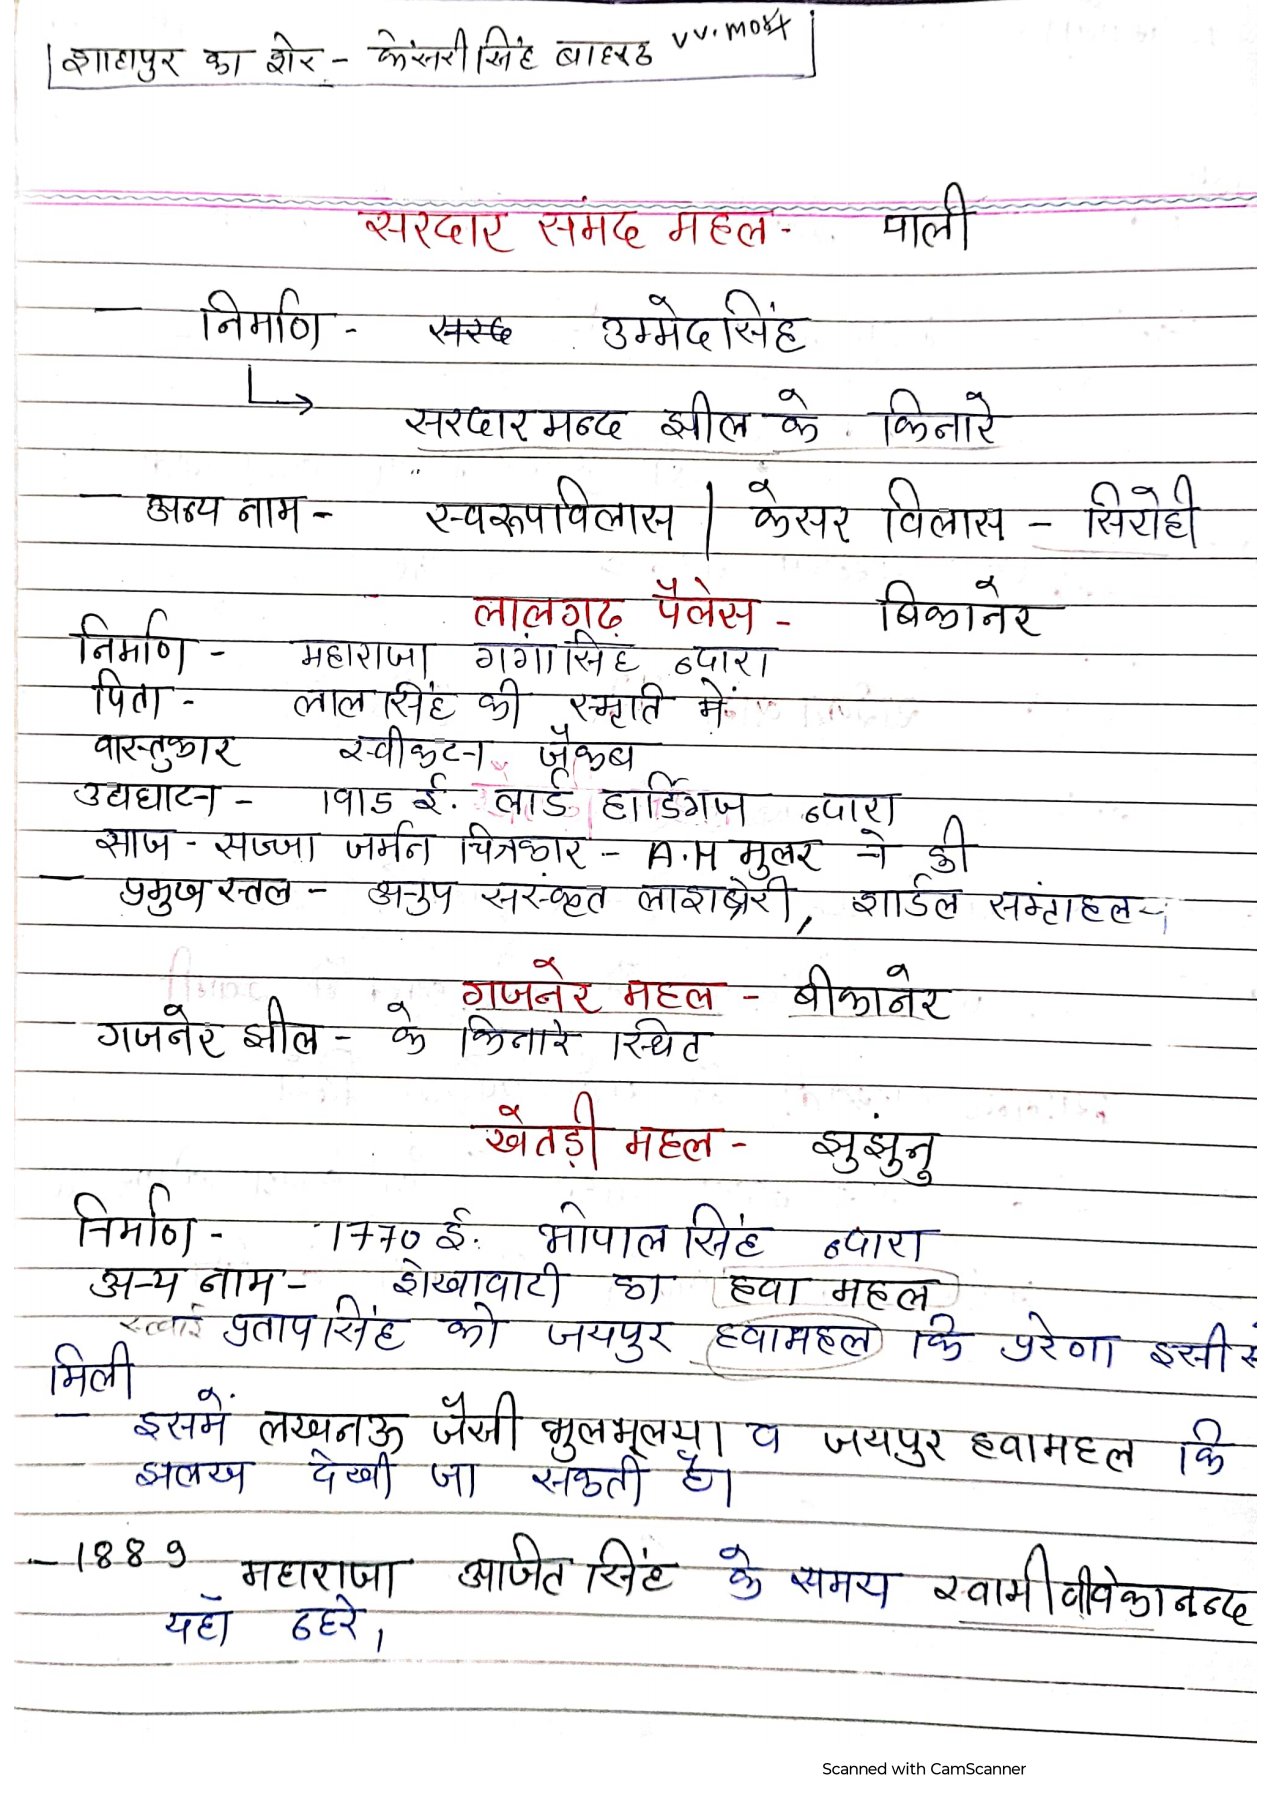 शाहापुर का शेर - केसरीसिंह बाहरठ vv. most
सरदार समंद महल - पाली
निर्माण - उम्मेदसिंह
सरदारमन्द झील के किनारे
- अन्य नाम - स्वरूपविलास | केसर विलास - सिरोही
लालगढ़ पैलेस - बिकानेर
निर्माण - महाराजा गंगासिंह द्वारा
पिता - लालसिंह की स्मृति में
वास्तुकार स्वीकटन जैकब
उद्यघाटन - 1915 ई. लार्ड हार्डिगज द्वारा
साज - सज्जा जर्मन चित्रकार - A.H मुलर ने की
- प्रमुख स्तल - अनुप संस्कृत लाइब्रेरी, शार्दुल संग्राहल
गजनेर महल - बीकानेर
गजनेर झील - के किनारे स्थित
खेतड़ी महल - झुझुंनु
निर्माण - 1770 ई. भोपालसिंह द्वारा
अन्य नाम - शेखावाटी का हवा महल
प्रतापसिंह को जयपुर हवामहल कि प्ररेणा इसी से
मिली
- इसमें लखनऊ जैसी भुलभूलया व जयपुर हवामहल कि
झलख देखी जा सकती है।
- 1889 महाराजा अजित सिंह के समय स्वामी वीवेकानन्द
यहाँ ठहरे।
Scanned with CamScanner